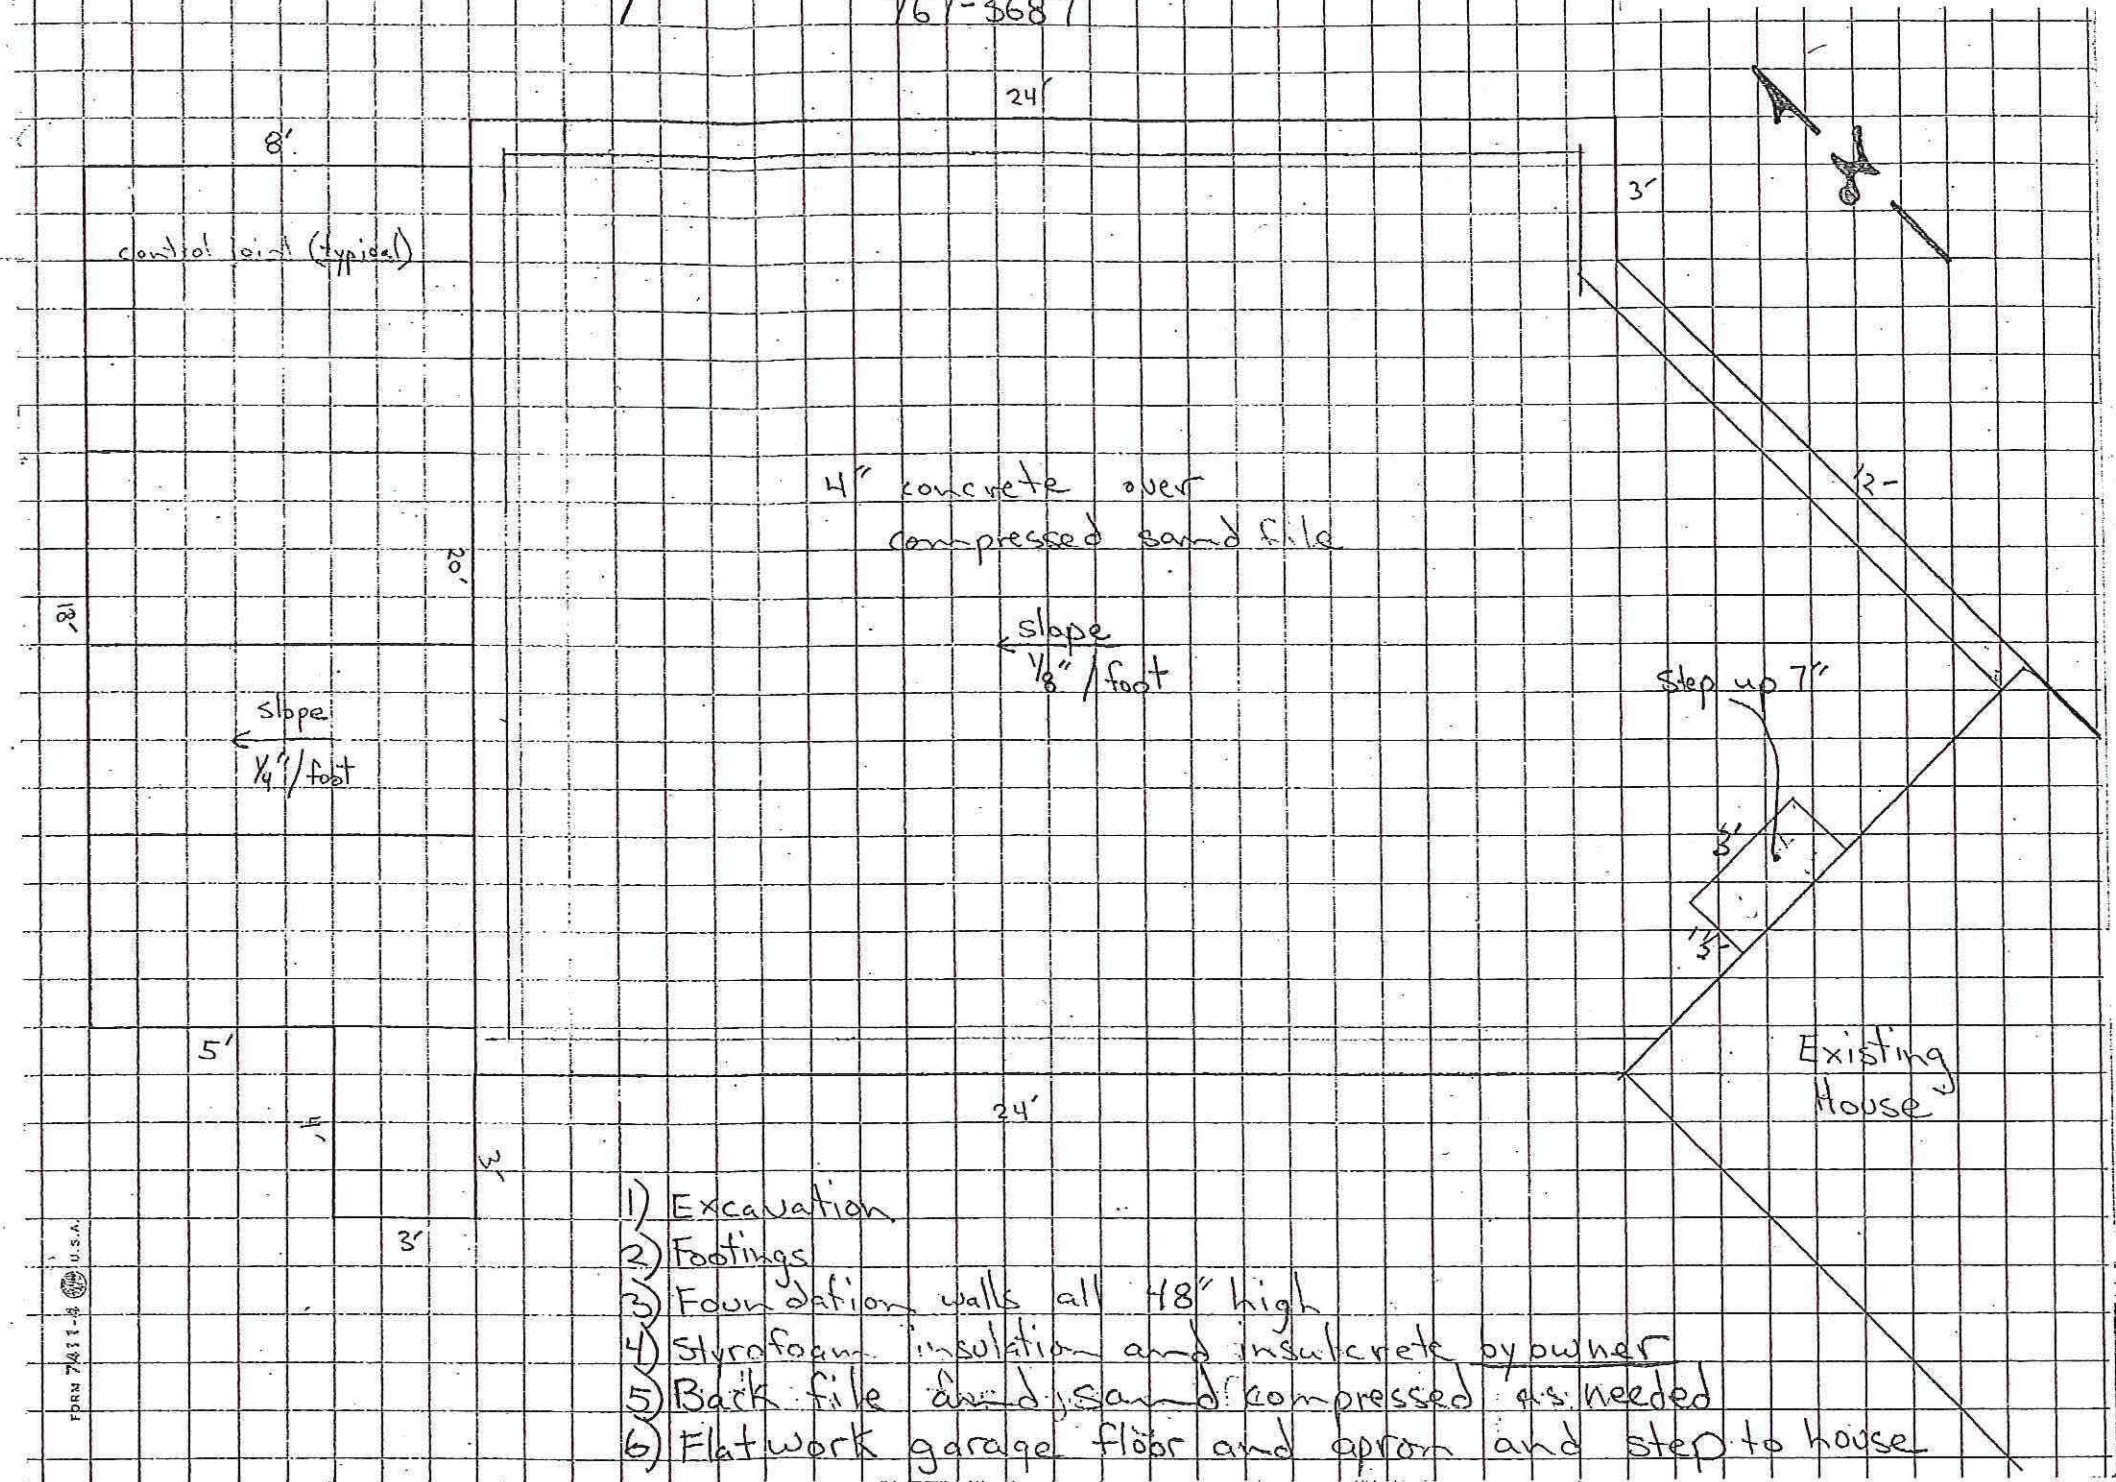 24'
8'
3'
control joint (typical)
12'
4" concrete over
compressed sand file
20'
18'
slope
1/8" / foot
step up 7"
slope
1/4" / foot
5'
Existing
House
5'
24'
4'
3'
3'
1) Excavation
2) Footings
3) Foundation walls all 48" high
4) Styrofoam insulation and insulcrete by owner
5) Back file and sand compressed as needed
6) Flatwork garage floor and apron and step to house
FORM 7411-4 U.S.A.